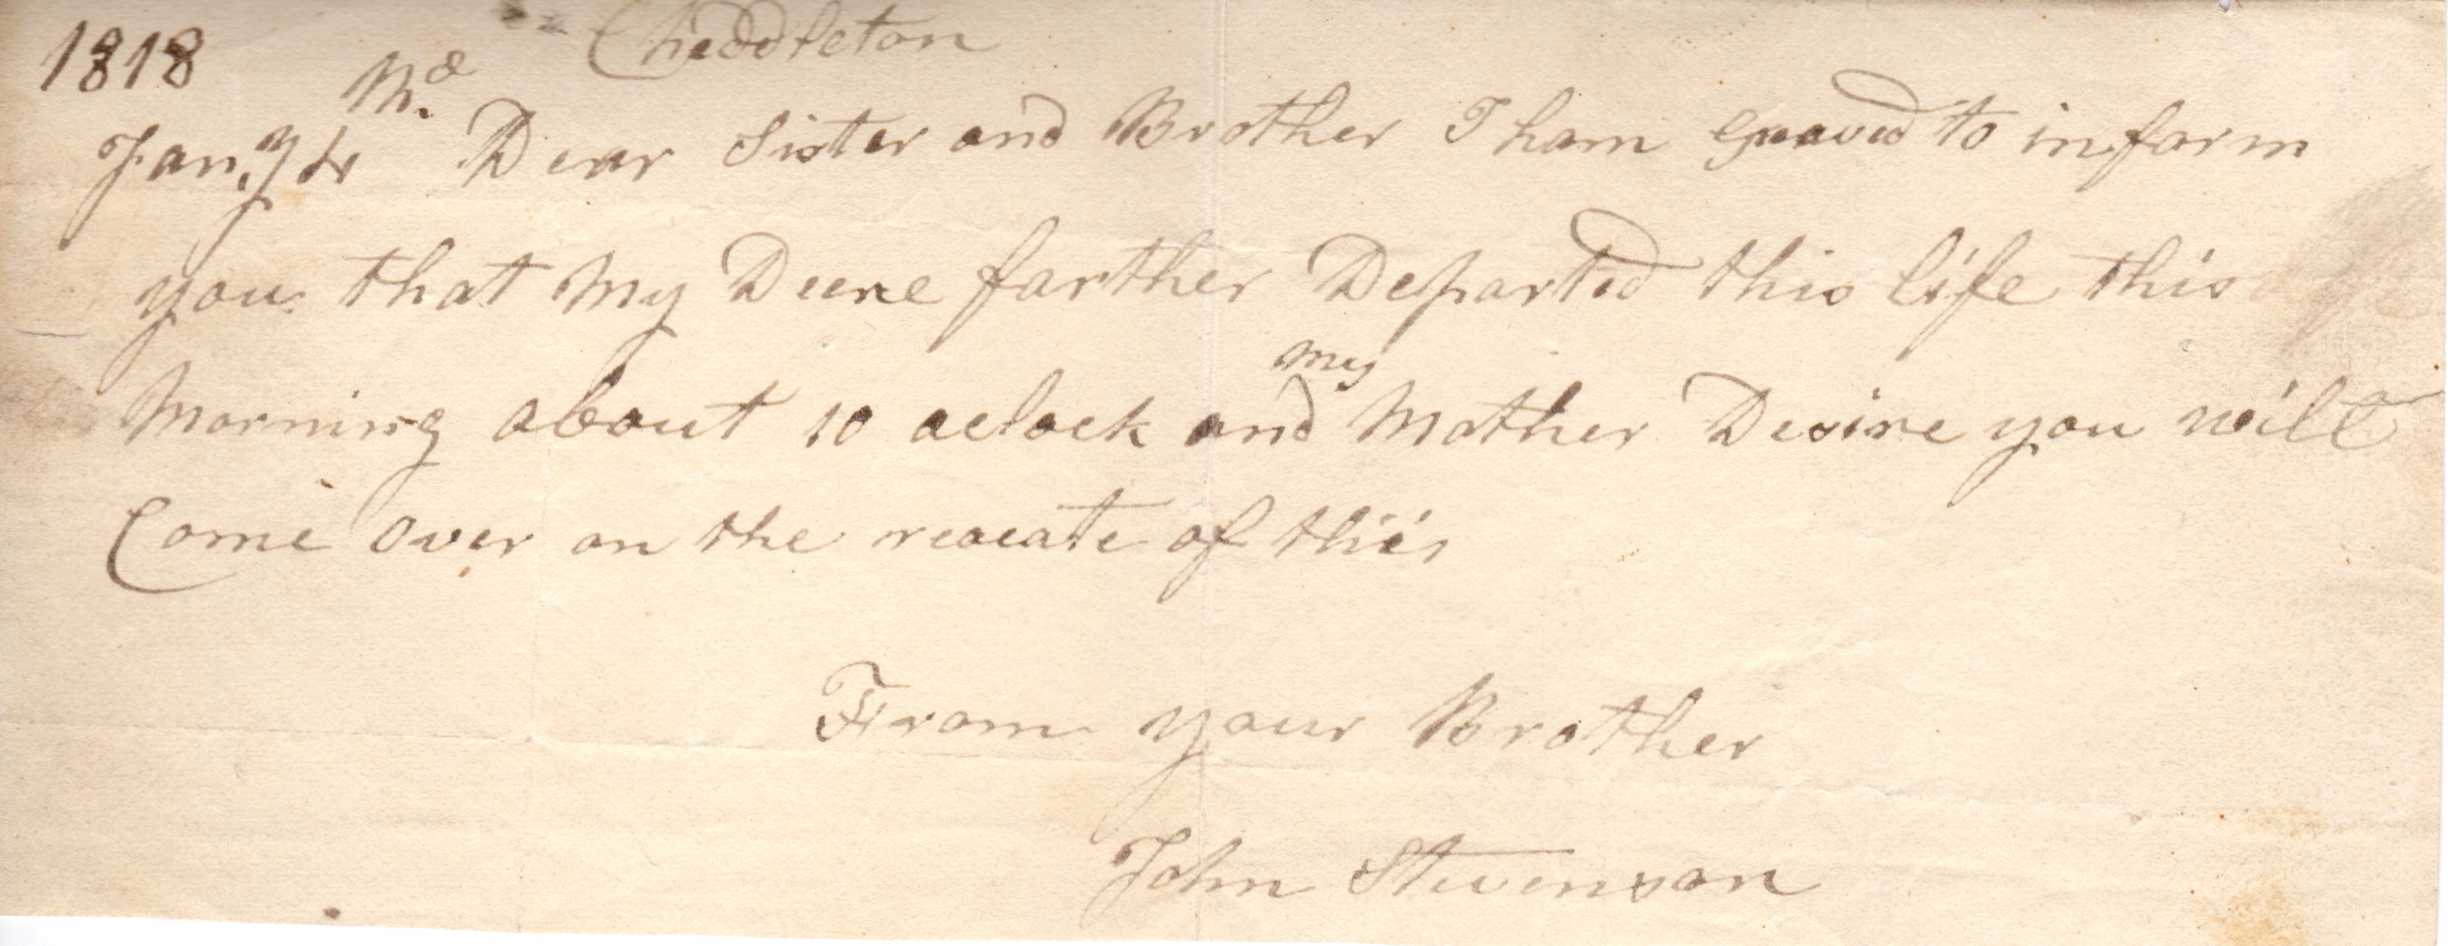 1818 Cheddleton
Jany 4 Dear Sister and Brother I ham graved to inform
you that My Deere farther Departed this life this
Morning about 10 aclock and my Mother Desire you will
Come Over on the receate of this
From your Brother
John Stevenson